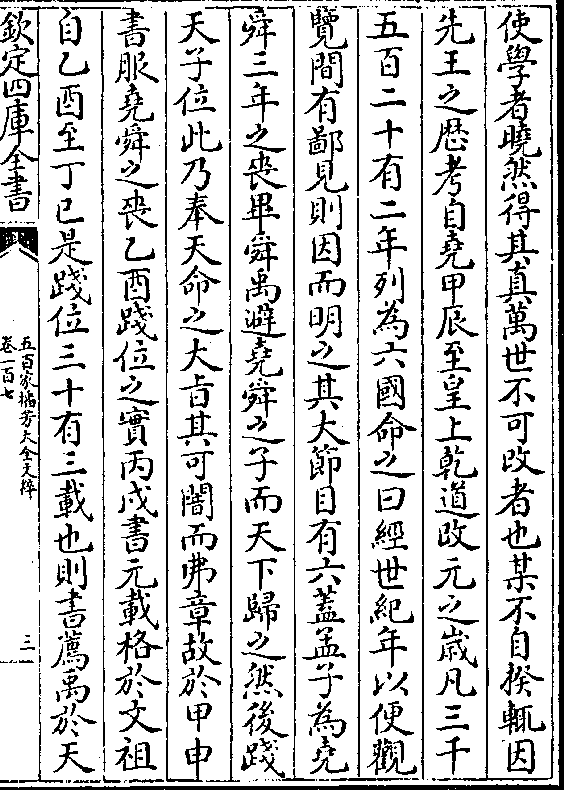 使學者曉然得其真萬世不可改者也某不自揆輒因
先王之歴考自堯甲辰至皇上乾道改元之歲凡三千
五百二十有二年列為六國命之曰經世紀年以便觀
覽間有鄙見則因而明之其大節目有六蓋孟子為堯
舜三年之喪畢舜禹避堯舜之子而天下歸之然後踐
天子位此乃奉天命之大㫖其可闇而弗章故於甲申
書服堯舜之喪乙酉踐位之實丙戌書元載格於文祖
自乙酉至丁巳是踐位三十有三載也則書薦禹於天
欽定四庫全書
五百家播芳大全文粹
卷一百七
三